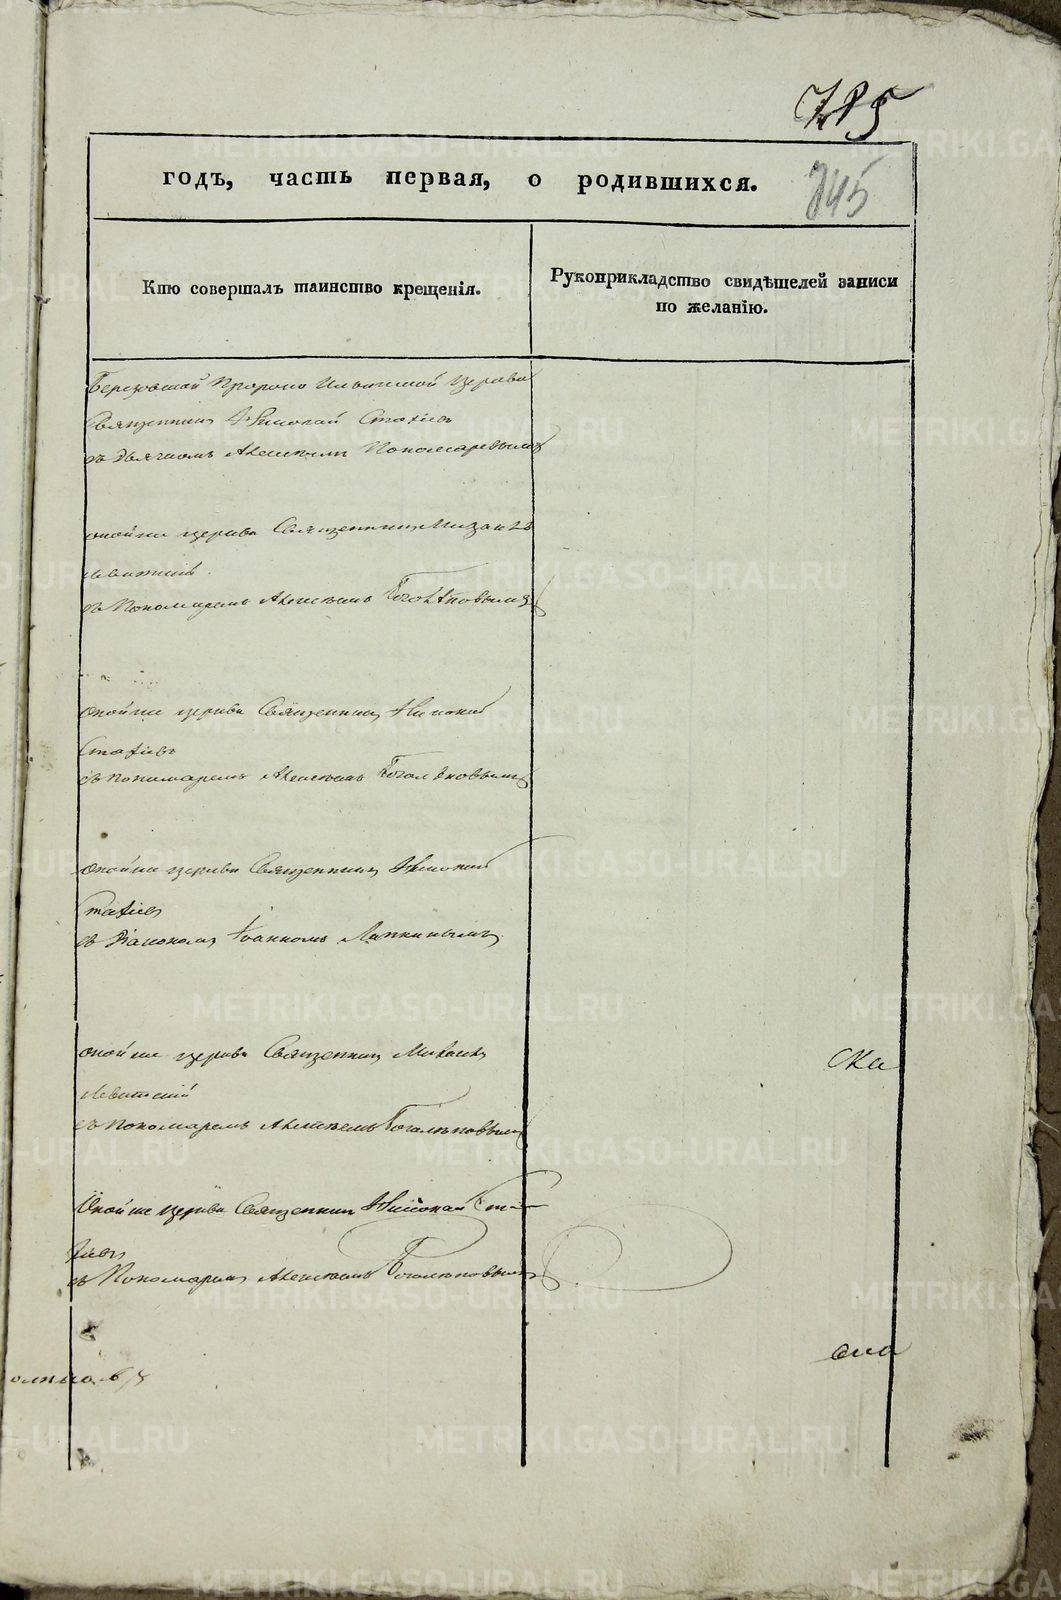 785
745
годъ, часть первая, о родившихся.
Кто совершалъ таинство крещенія.
Рукоприкладство свидѣтелей записи
по желанію.
Березовской Пророко Ильинской Церкви
Священникъ Николай Стафіевъ
съ Дьячкомъ Алексѣемъ Пономаревымъ
оной же церкви Священникъ Михаилъ
Левитскій
съ Пономаремъ Алексѣемъ Боголѣповымъ
оной же церкви Священникъ Николай
Стафіевъ
съ пономаремъ Алексѣемъ Боголѣповымъ
оной же церкви Священникъ Николай
Стафіевъ
съ Діакономъ Іоанномъ
оной же церкви Священникъ Михаилъ
Левитскій
съ пономаремъ Алексѣемъ Боголѣповымъ
Оной же церкви Священникъ Николай Ста-
фіевъ
съ Пономаремъ Алексѣемъ Боголѣповымъ
METRIKI.GASO-URAL.RU